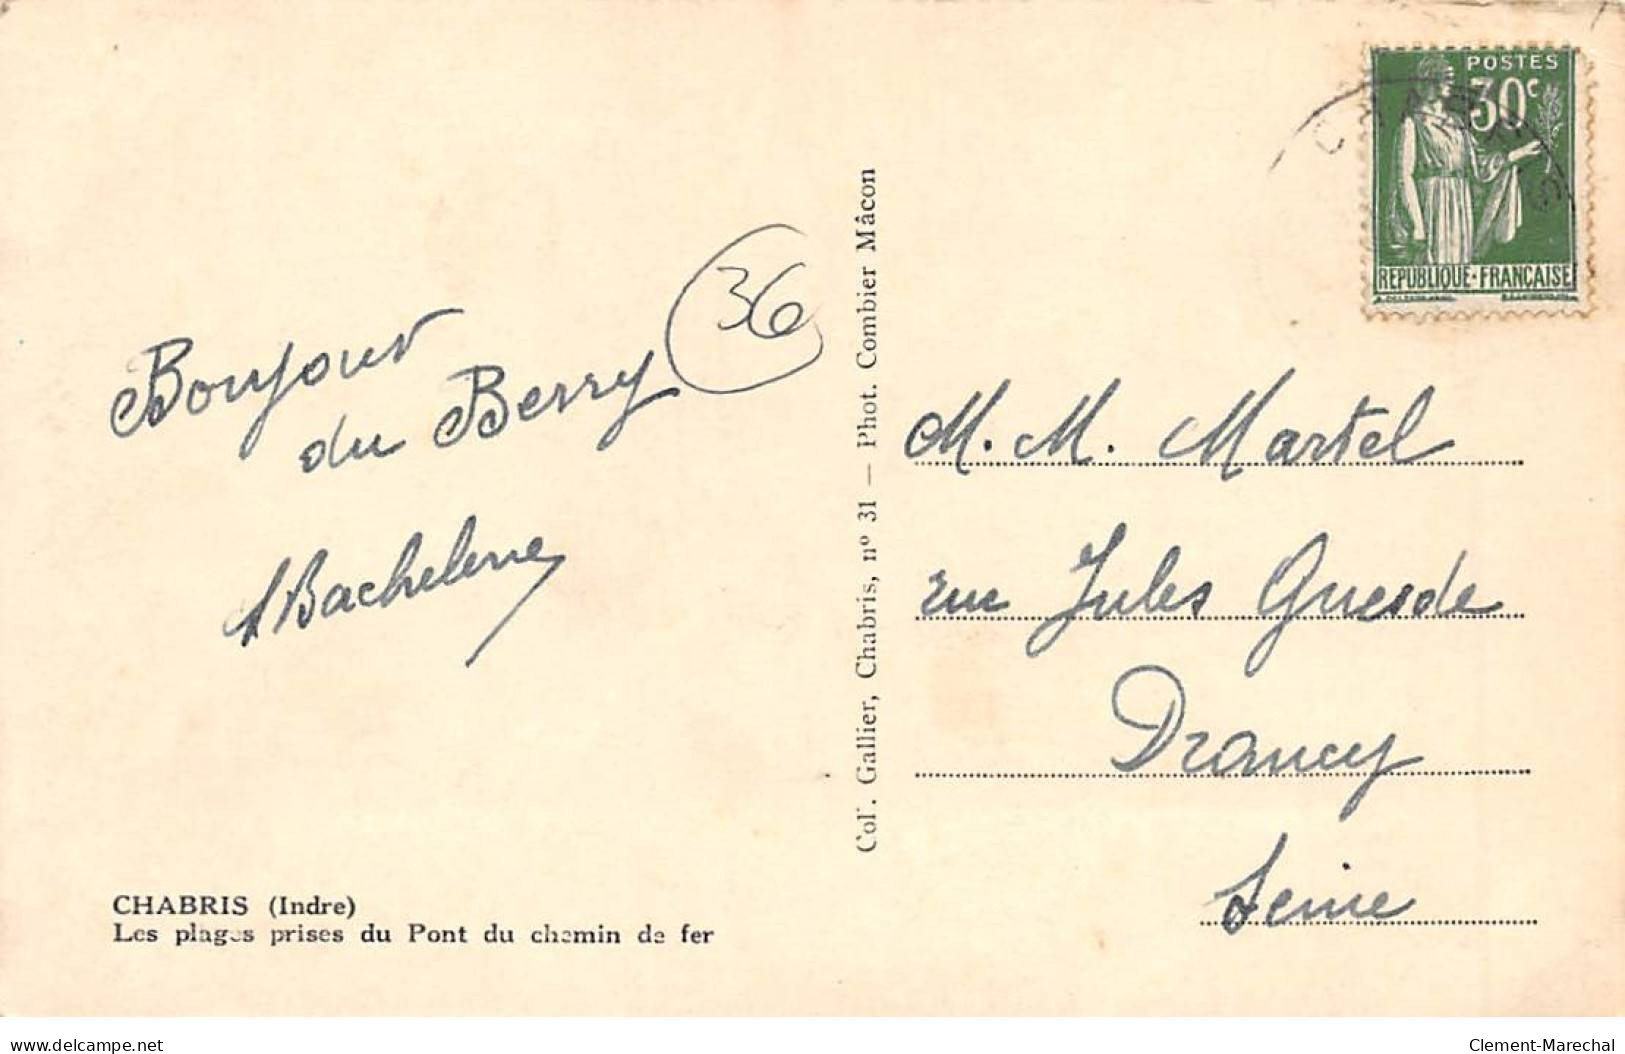 POSTES
30c
REPUBLIQUE-FRANÇAISE
36
Bonjour
du Berry
M. M. Martel
rue Jules Guesde
Drancy
Seine
Col. Gallier, Chabris, nº 31 — Phot. Combier Mâcon
CHABRIS (Indre)
Les plages prises du Pont du chemin de fer
www.delcampe.net
Clement-Marechal